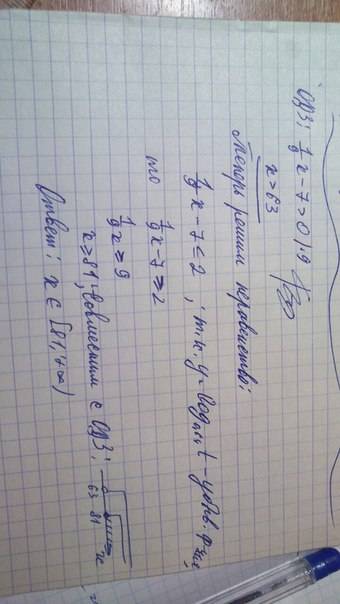 ОДЗ: 1/9 x - 7 > 0 | · 9
x > 63
Теперь решим неравенство:
1/9 x - 7 < 2 ; т.к. y = log₀,₁₁ t - убыв. ф-ия,
то 1/9 x - 7 ≥ 2
1/9 x ≥ 9
x ≥ 81, совместим с ОДЗ:
63 81 x
Ответ: x ∈ [81; +∞)